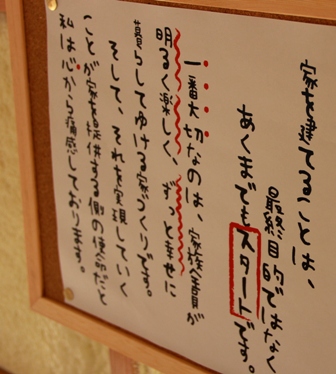 家を建てることは、
最終目的でなく
あくまでもスタートです。
一番大切なのは、家族全員が
明るく楽しく、ずっと幸せに
暮らしてゆける家づくりです。
そして、それを実現していく
ことが家を提供する側の使命だと
私は心から痛感しております。